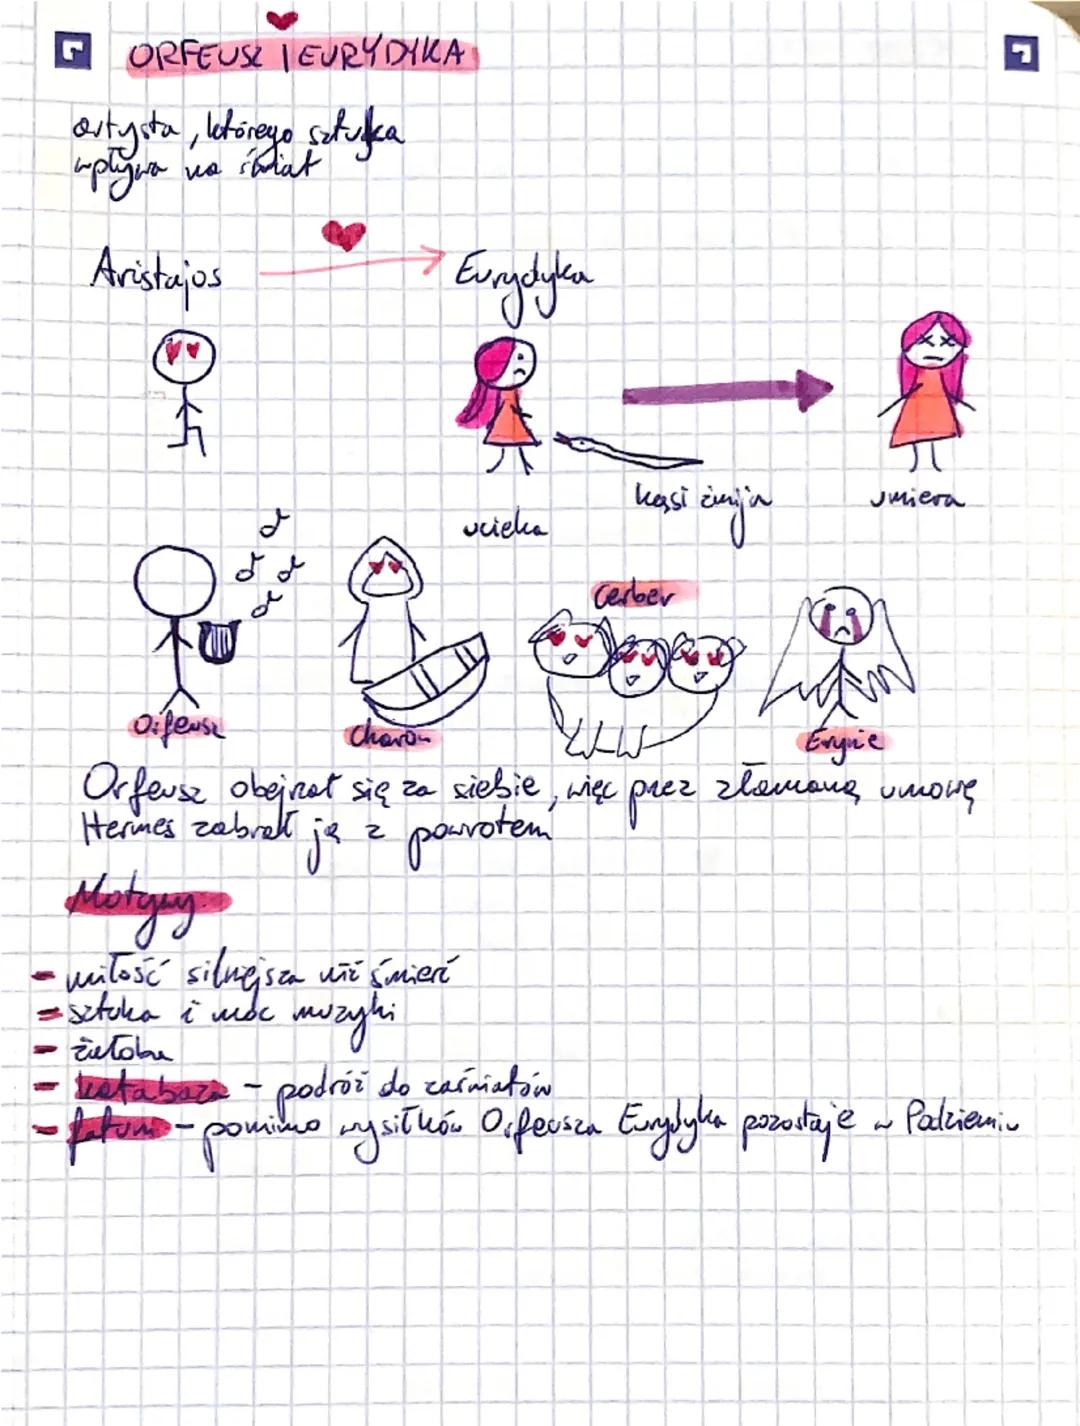 ORFEUSZ I EURYDYKA
artysta, którego sztuka
wpływa na świat
Aristajos
Eurydyka
ucieka
kąsi żmija
umiera
Orfeusz
Charon
Cerber
Erynie
Orfeusz obejrzał się za siebie, więc przez złamaną umowę
Hermes zabrał ją z powrotem
Motywy
- miłość silniejsza niż śmierć
- sztuka i moc muzyki
- żałoba
- katabaza - podróż do zaświatów
- fatum - pomimo wysiłków Orfeusza Eurydyka pozostaje w Podziemiu